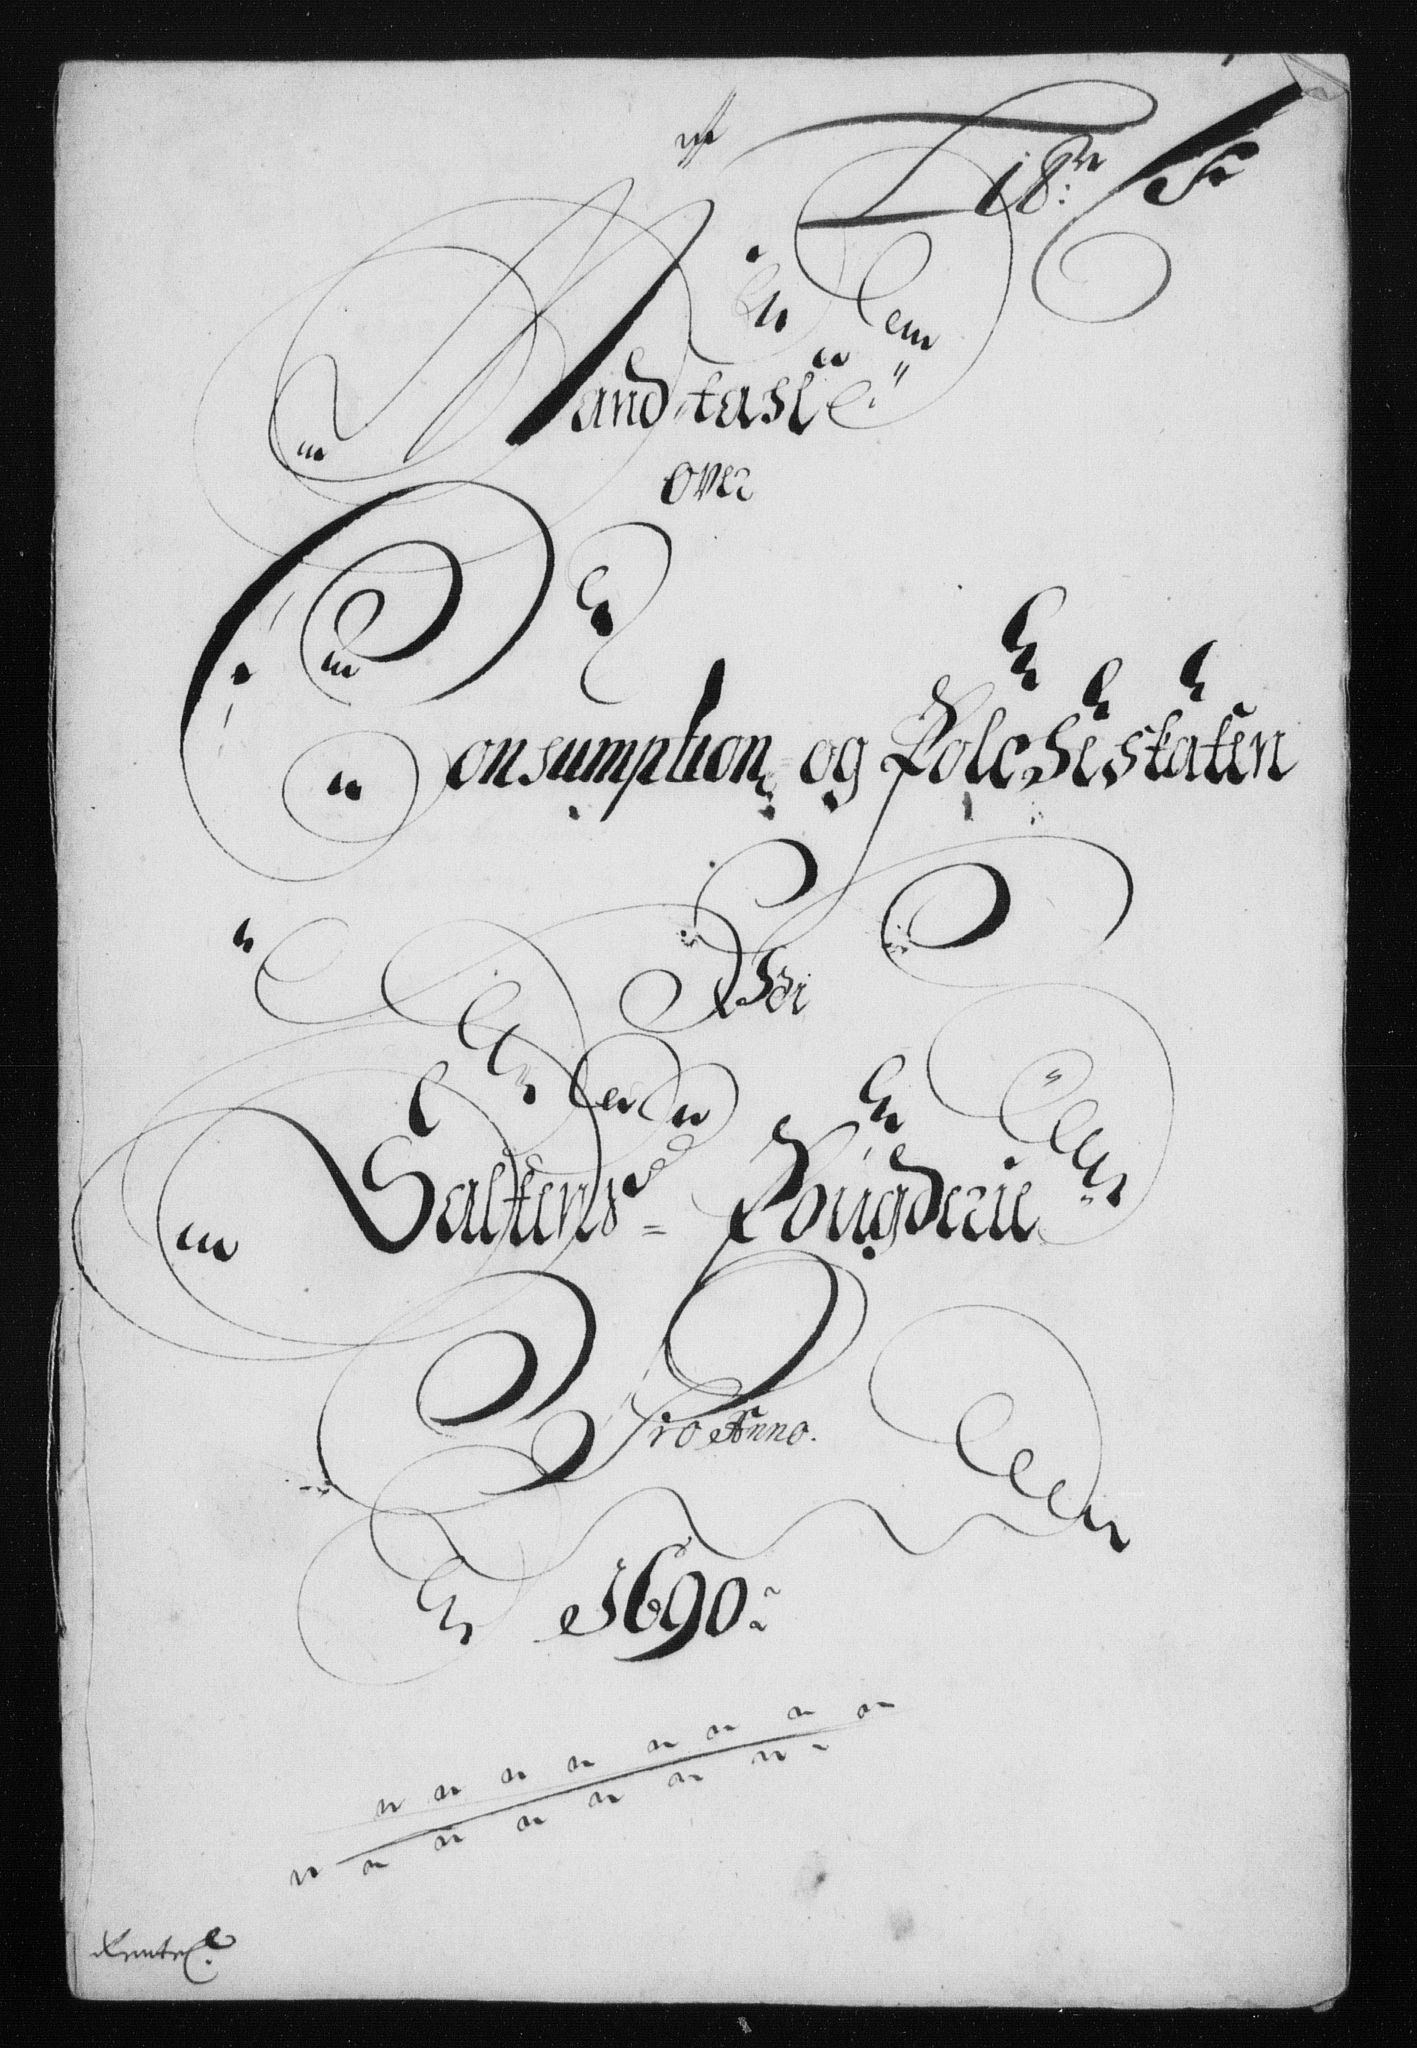 Mandtall
over
Consumption og Folcheskaten
Udi
Saltens = Fougderie
Pro Anno.
1690